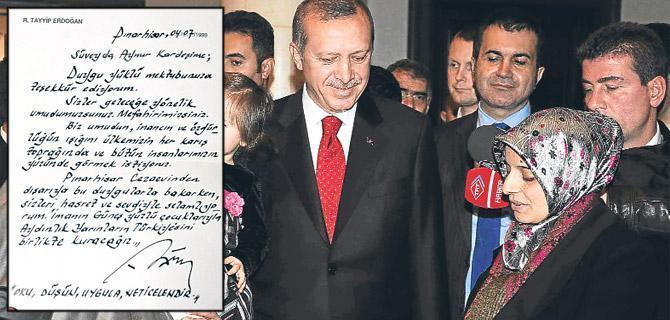 R. TAYYİP ERDOĞAN
Pınarhisar, 04.07/1999
Süveyda Aynur Kardeşime;
Duygu yüklü mektubunuza
teşekkür ediyorum.
Sizler geleceğe yönelik
umudumuzsunuz. Mefahirimizsiniz.
Biz umudun, inancın ve özgür
lüğün ışığını ülkemizin her karış
toprağında ve bütün insanlarımızın
yüzünde görmek istiyoruz.
Pınarhisar Cezaevinden
dışarıya bu duygularla bakarken,
sizleri hasret ve sevgiyle selamlıyo-
rum. İmanın Güneş yüzlü çocuklarıyla
Aydınlık Yarınların Türkiyesini
birlikte kuracağız.
"OKU, DÜŞÜN, UYGULA, NETİCELENDİR."
HABER